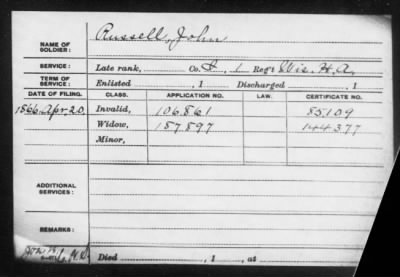 NAME OF SOLDIER: Russell, John
SERVICE: Late rank, Co. I, 1 Reg't Wis. H. A.
TERM OF SERVICE: Enlisted , 1 Discharged , 1
DATE OF FILING. CLASS. APPLICATION NO. LAW. CERTIFICATE NO.
1866, Apr. 20. Invalid, 106.861 85.109
Widow, 187.897 144377
Minor,
ADDITIONAL SERVICES:
REMARKS:
Died , 1 , at